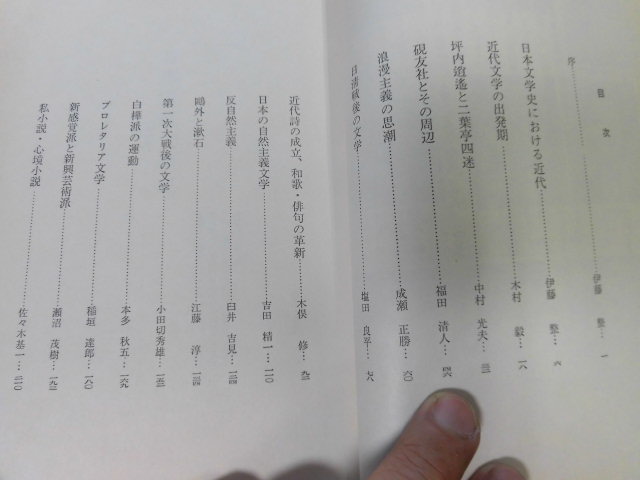 目次
序…伊藤 整…一
日本文学史における近代…伊藤 整…六
近代文学の出発期…木村 毅…一八
坪内逍遙と二葉亭四迷…中村 光夫…三一
硯友社とその周辺…福田 清人…四六
浪漫主義の思潮…成瀬 正勝…六〇
日清戦後の文学…塩田 良平…七八
近代詩の成立、和歌・俳句の革新…木俣 修…九二
日本の自然主義文学…吉田 精一…一一〇
反自然主義…臼井 吉見…一三四
鷗外と漱石…江藤 淳…一三四
第一次大戦後の文学…小田切秀雄…一五二
白樺派の運動…本多 秋五…一六九
プロレタリア文学…稲垣 達郎…一八〇
新感覚派と新興芸術派…瀬沼 茂樹…一九二
私小説・心境小説…佐々木基一…二一〇